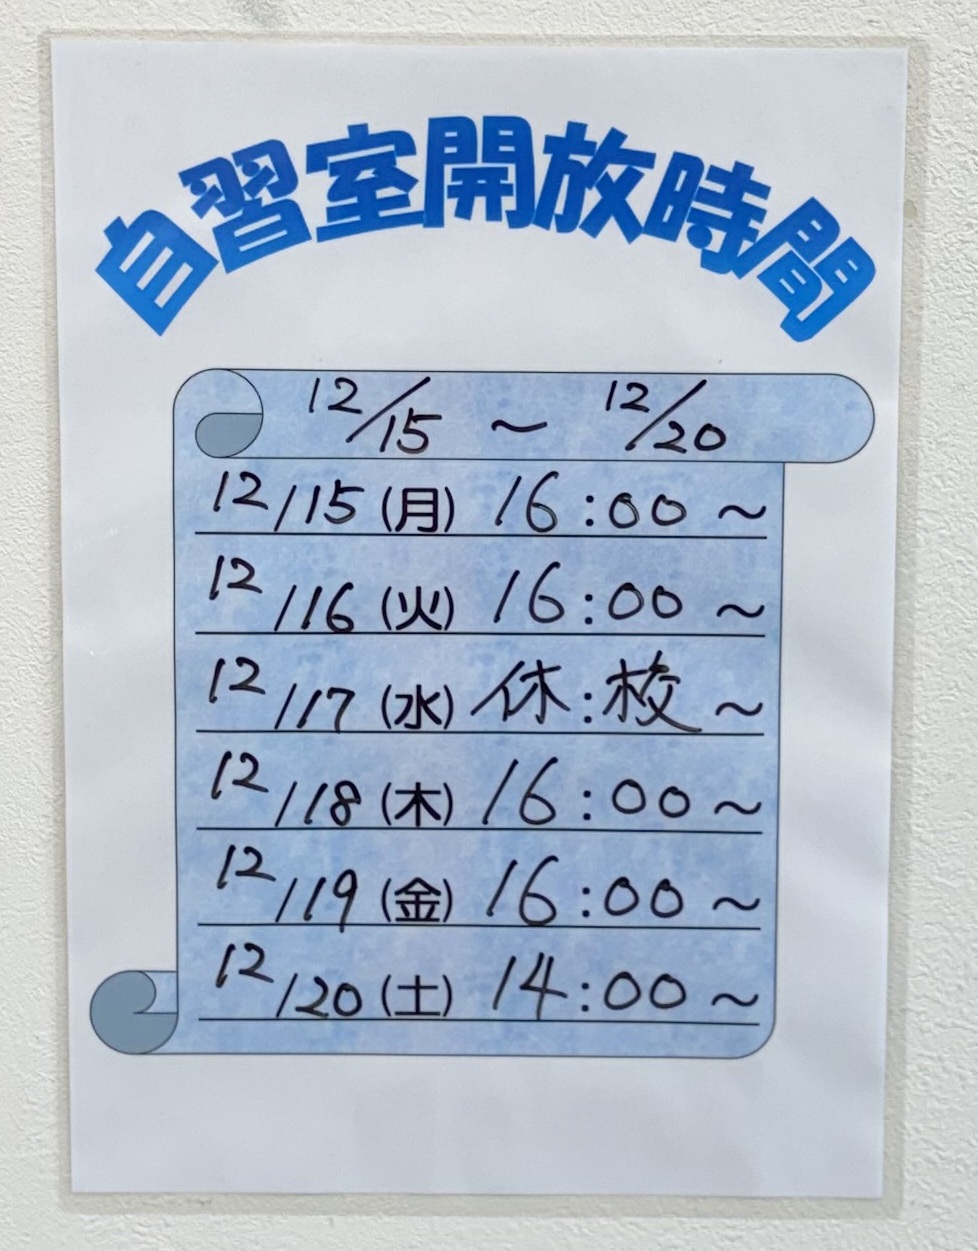 自習室開放時間
12/15 ～ 12/20
12/15 (月) 16:00～
12/16 (火) 16:00～
12/17 (水) 休:校～
12/18 (木) 16:00～
12/19 (金) 16:00～
12/20 (土) 14:00～